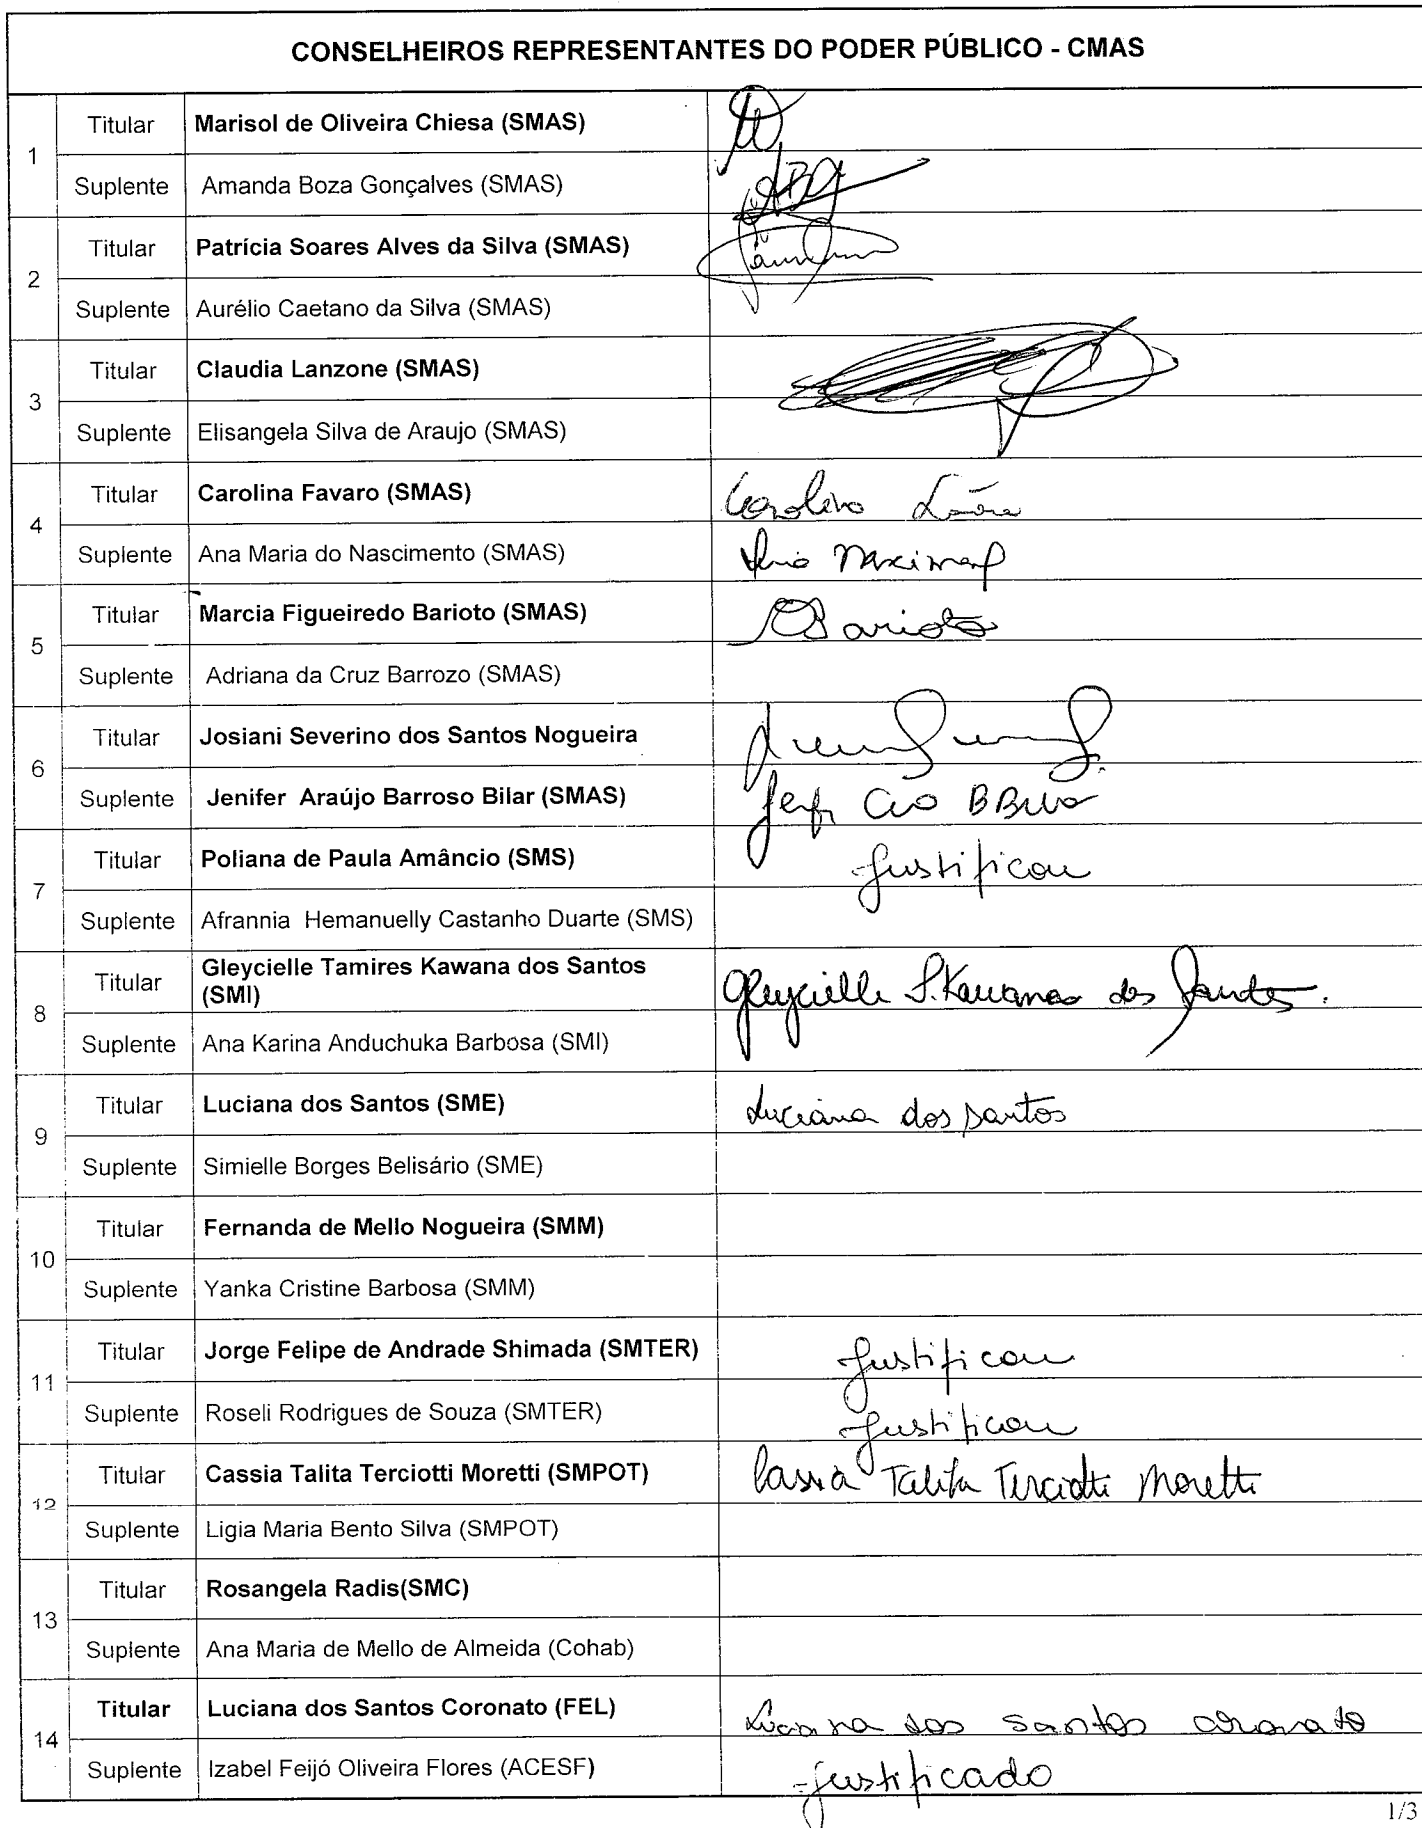 CONSELHEIROS REPRESENTANTES DO PODER PÚBLICO - CMAS
1
Titular Marisol de Oliveira Chiesa (SMAS)
Suplente Amanda Boza Gonçalves (SMAS)
2
Titular Patrícia Soares Alves da Silva (SMAS)
Suplente Aurélio Caetano da Silva (SMAS)
3
Titular Claudia Lanzone (SMAS)
Suplente Elisangela Silva de Araujo (SMAS)
4
Titular Carolina Favaro (SMAS)
Suplente Ana Maria do Nascimento (SMAS)
5
Titular Marcia Figueiredo Barioto (SMAS) Barioto
Suplente Adriana da Cruz Barrozo (SMAS)
6
Titular Josiani Severino dos Santos Nogueira
Suplente Jenifer Araújo Barroso Bilar (SMAS)
7
Titular Poliana de Paula Amâncio (SMS) Justificou
Suplente Afrannia Hemanuelly Castanho Duarte (SMS)
8
Titular Gleycielle Tamires Kawana dos Santos
(SMI) Gleycielle T. Kawana dos Santos.
Suplente Ana Karina Anduchuka Barbosa (SMI)
9
Titular Luciana dos Santos (SME) Luciana dos Santos
Suplente Simielle Borges Belisário (SME)
10
Titular Fernanda de Mello Nogueira (SMM)
Suplente Yanka Cristine Barbosa (SMM)
11
Titular Jorge Felipe de Andrade Shimada (SMTER) Justificou
Suplente Roseli Rodrigues de Souza (SMTER) Justificou
12
Titular Cassia Talita Terciotti Moretti (SMPOT) Cassia Talita Terciotti Moretti
Suplente Ligia Maria Bento Silva (SMPOT)
13
Titular Rosangela Radis(SMC)
Suplente Ana Maria de Mello de Almeida (Cohab)
14
Titular Luciana dos Santos Coronato (FEL) Luciana dos Santos Coronato
Suplente Izabel Feijó Oliveira Flores (ACESF) Justificado
1/3